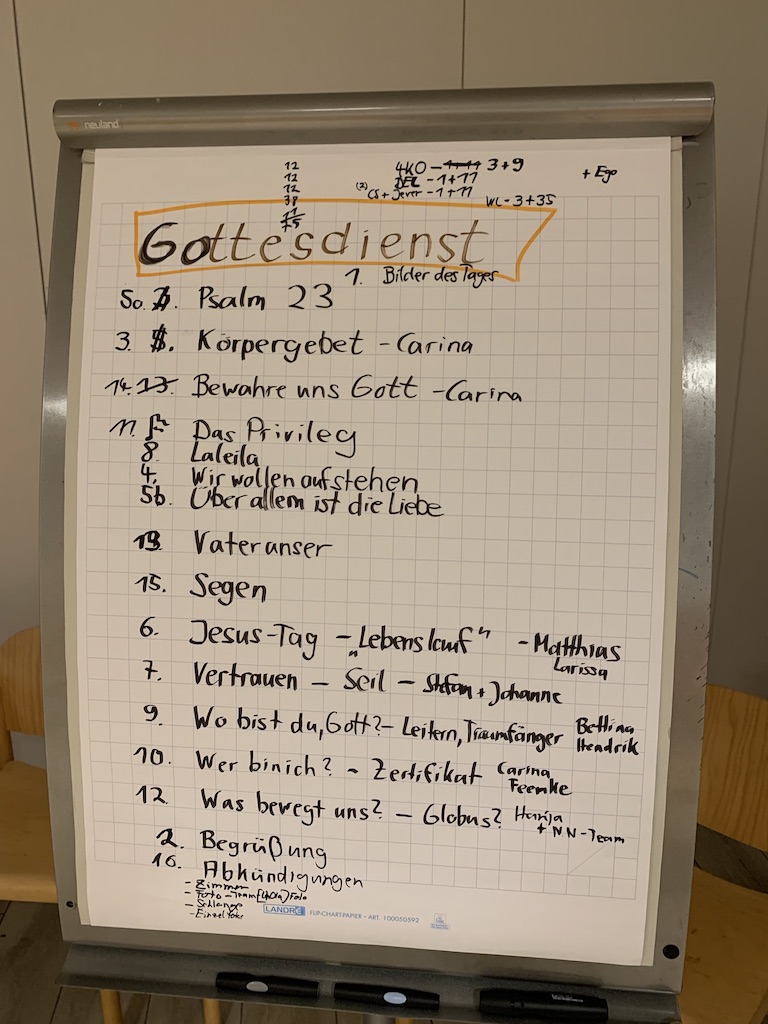 neuland
12
12
12
38
75
4KO - 3+9
DEL - 1+11
(2) CS + Jever - 1+11
WL - 3+35
+ Ego
Gottesdienst
1. Bilder des Tages
5a. Psalm 23
3. 8. Körpergebet - Carina
14. 13. Bewahre uns Gott - Carina
11. Das Privileg
8. Laleila
4. Wir wollen aufstehen
5b. Über allem ist die Liebe
13. Vater unser
15. Segen
6. Jesus-Tag - „Lebenslauf" - Matthias
Larissa
7. Vertrauen - Seil - Stefan + Johanne
9. Wo bist du, Gott? - Leitern, Traumfänger Bettina
Hendrik
10. Wer bin ich? - Zertifikat Carina
Feemke
12. Was bewegt uns? - Globus?
+ NN-Team
2. Begrüßung
16. Abkündigungen
- Zimmer
- Foto - Team Foto
- Schlange
- Einzel
LANDRÉ FLIP-CHARTPAPIER - ART. 100050592